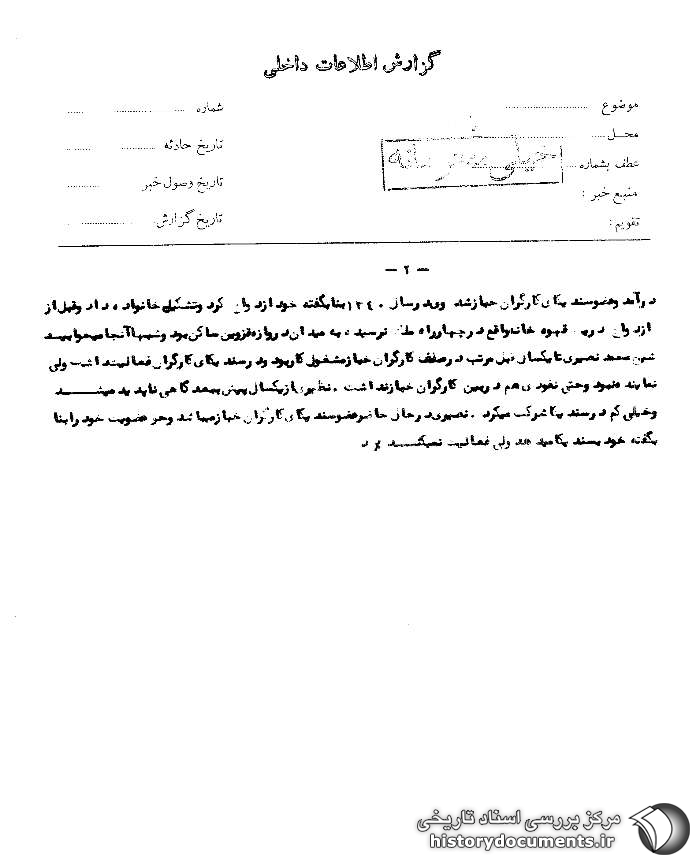 گزارش اطلاعات داخلی
موضوع
محل
عطف بشماره
منبع خبر :
تقویم :
شماره
تاریخ حادثه
تاریخ وصول خبر
تاریخ گزارش
خیلی محرمانه
— ۲ —
درآمد و عضو سندیکای کارگران خباز شد وی در سال ۱۳۴۰ بنا بگفته خود ازدواج کرد و تشکیل خانواده داد و قبل از
ازدواج در یک قهوه خانه واقع در چهارراه نرسیده به میدان دروازه قزوین ساکن بود و شبها آنجا میخوابید
نصیری تا یکسال قبل مرتب در صنف کارگران خباز مشغول کار بود و در سندیکای کارگران فعالیت داشت ولی
نماینده نبود و حتی نفوذی هم در بین کارگران خباز نداشت . نظیری از یکسال پیش ببعد گاهی ناپدید میشد
و خیلی کم در سندیکا شرکت میکرد . نصیری در حال حاضر عضو سندیکای کارگران خباز میباشد و حق عضویت خود را بنا
بگفته خود بسندیکا میدهد ولی فعالیت نمیکند
مرکز بررسی اسناد تاریخی
historydocuments.ir